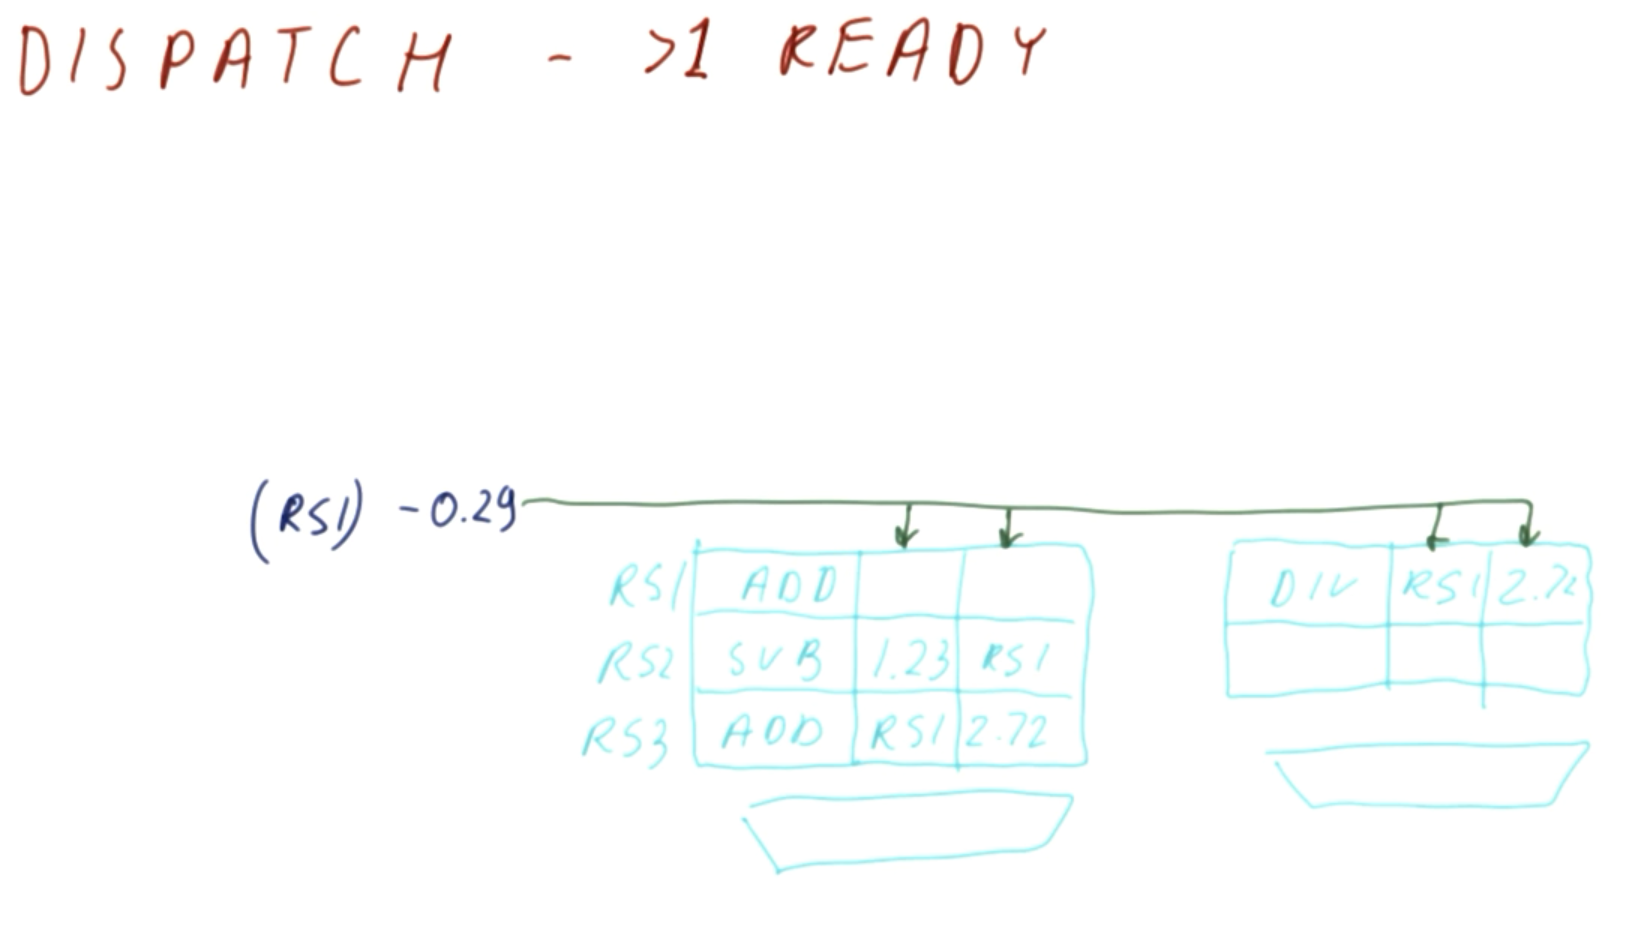 DISPATCH - >1 READY
(RS1) -0.29
RS1 ADD
RS2 SUB 1.23 RS1
RS3 ADD RS1 2.72
DIV RS1 2.72